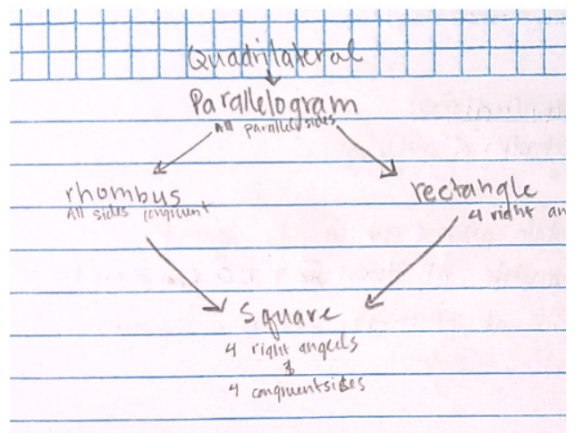 Quadrilateral
Parallelogram
All parallel sides
rhombus
All sides congruent
rectangle
4 right an
Square
4 right angels
&
4 congruent sides